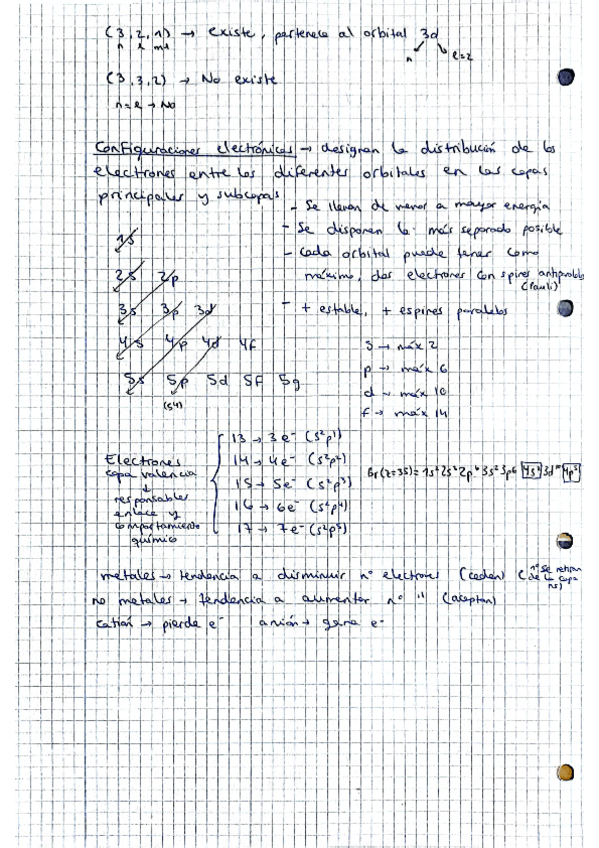 (3, 2, 1) → existe, pertenece al orbital 3d
n l ml n l=2
(3, 3, 2) → No existe
n=l → No
Configuraciones electrónicas → designan la distribución de los
electrones entre los diferentes orbitales en las capas
principales y subcapas
- Se llenan de menor a mayor energía
- Se disponen lo más separado posible
- Cada orbital puede tener como
máximo, dos electrones con spines antiparalelos
(Pauli)
- + estable, + espines paralelos
1s
2s 2p
3s 3p 3d
4s 4p 4d 4f
5s 5p 5d 5f 5g
(54)
s → máx 2
p → máx 6
d → máx 10
f → máx 14
Electrones
capa valencia
↓
responsables
enlace y
comportamiento
químico
13 → 3e⁻ (s²p¹)
14 → 4e⁻ (s²p²)
15 → 5e⁻ (s²p³)
16 → 6e⁻ (s²p⁴)
17 → 7e⁻ (s²p⁵)
Br (z=35) = 1s² 2s² 2p⁶ 3s² 3p6 4s² 3d¹⁰ 4p⁵
metales → tendencia a disminuir nº electrones (ceden) (1º se retiran de la capa ns)
no metales → tendencia a aumentar nº " (aceptan)
catión → pierde e⁻ anión → gana e⁻